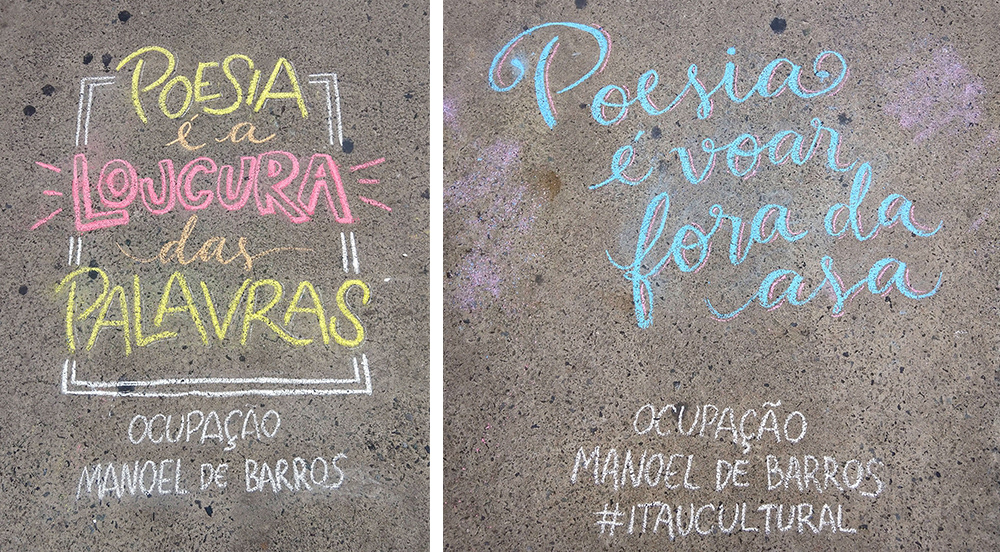 POESIA
é a
LOUCURA
das
PALAVRAS
OCUPAÇÃO
MANOEL DE BARROS
Poesia
é voar
fora da
asa
OCUPAÇÃO
MANOEL DE BARROS
#ITAUCULTURAL